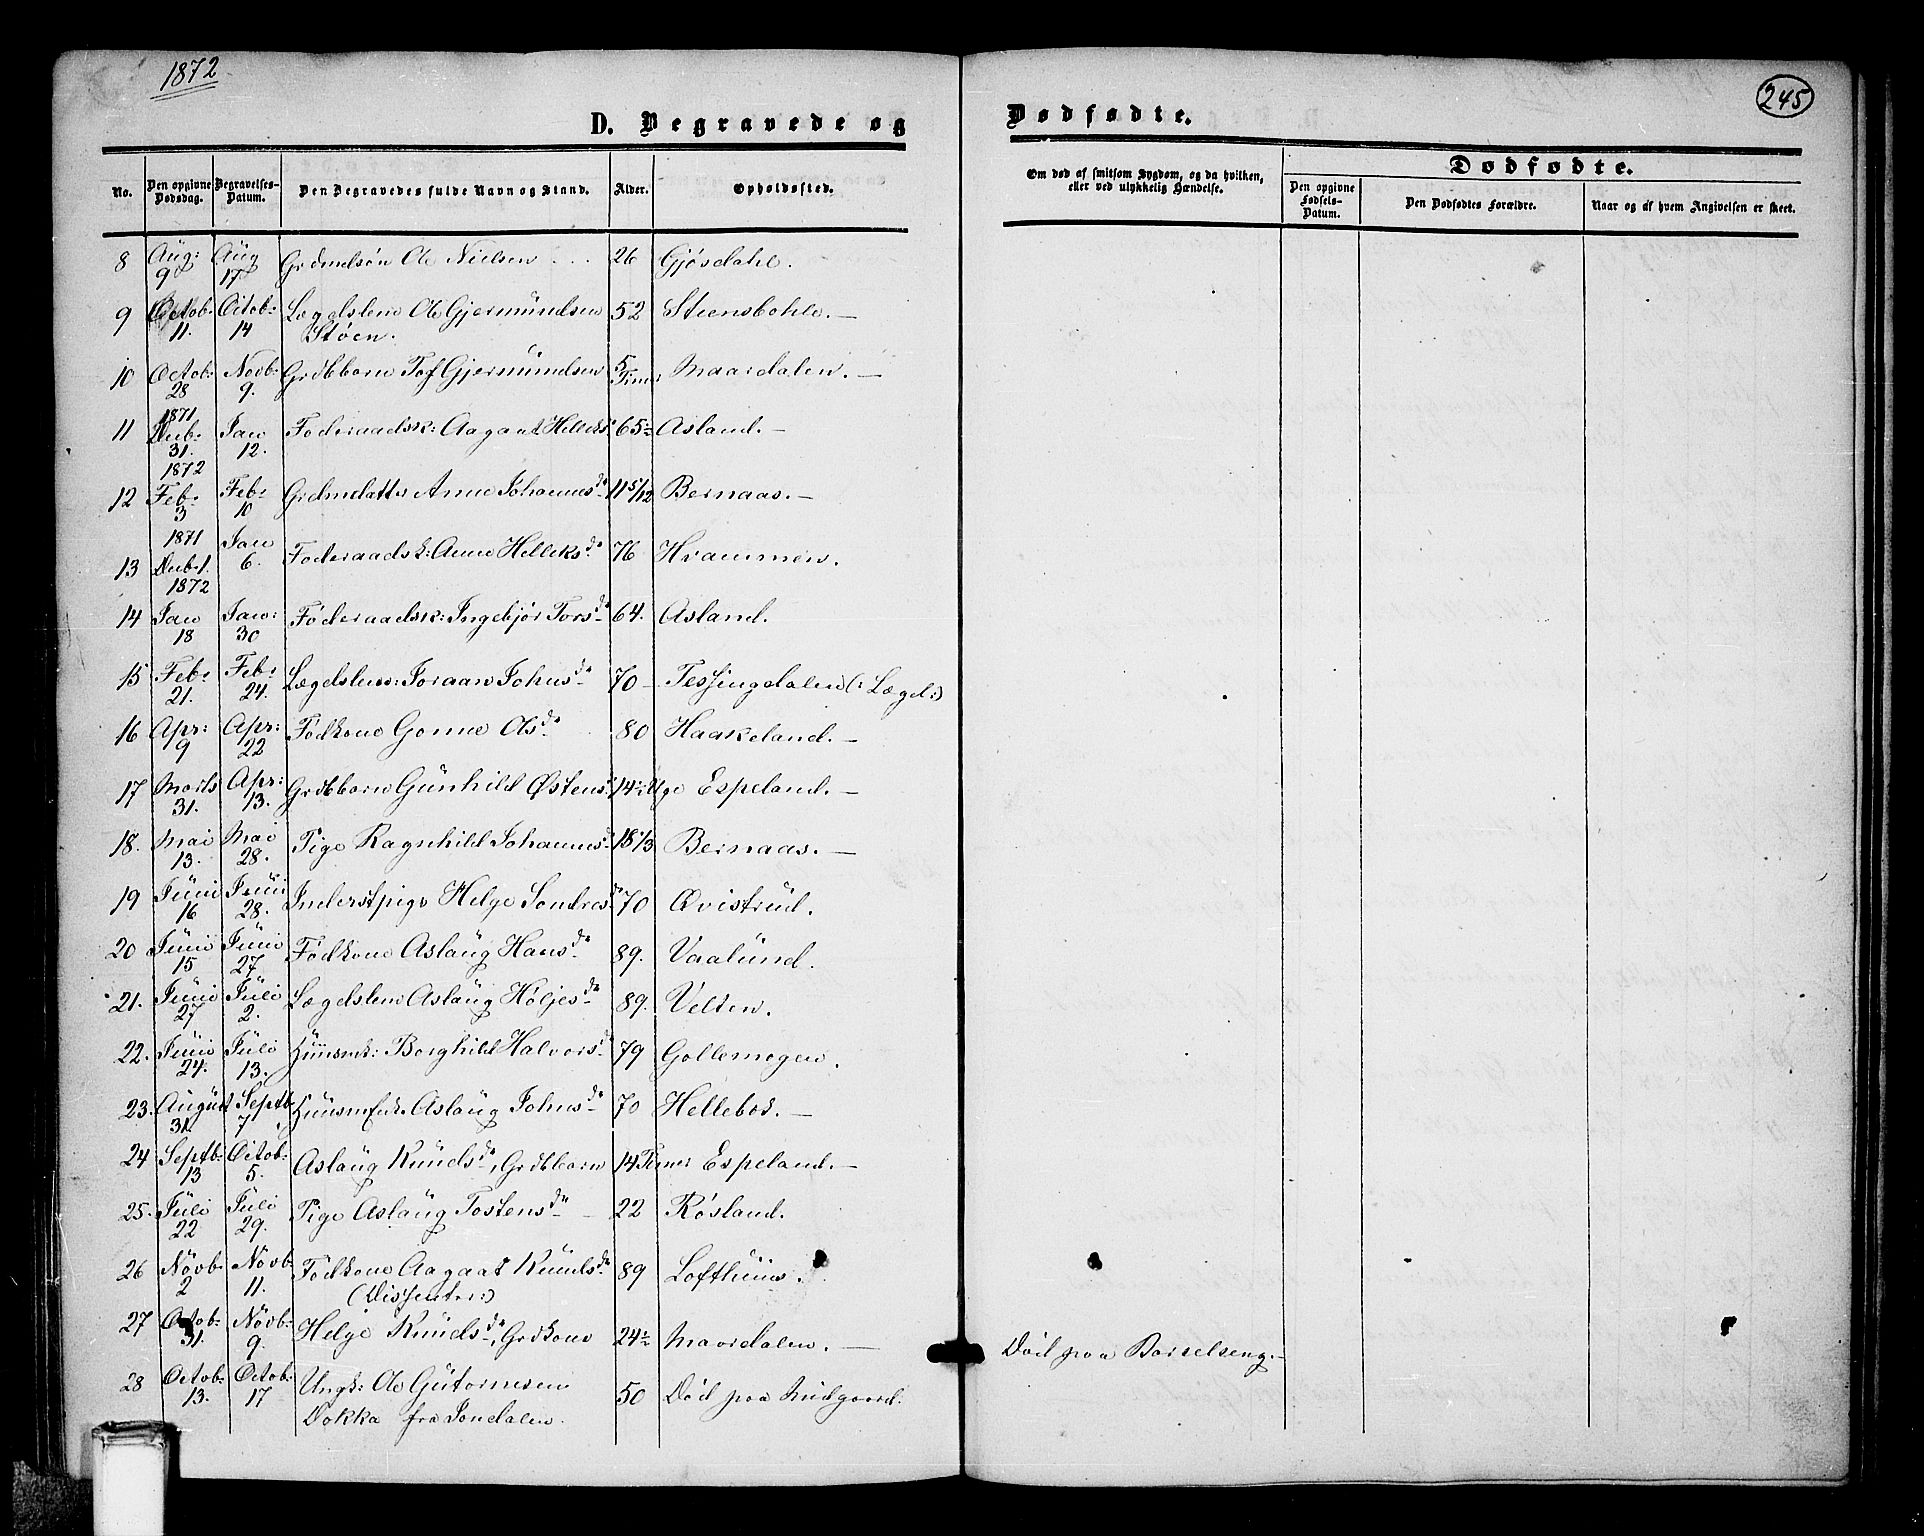 1872
245
D. Begravede og
Dødfødte.
No.
Den opgivne Dødsdag.
Begravelses-Datum.
Den Begravedes fulde Navn og Stand.
Alder.
Opholdssted.
Om død af smitsom Sygdom, og da hvilken, eller ved ulykkelig Hændelse.
Dødfødte.
Den opgivne Fødsels-Datum.
Den Dødfødtes Forældre.
Naar og af hvem Angivelsen er skeet.
8 Aug: 9 Aug 17 Grdmdsøn Ole Nielsen 26 Gjøsdahl.
9 Octob: 11. Octob: 14 Lægdslem Ole Gjermundsen 52 Steensbohle.
Støen.
10 Octob: 28 Novb: 9. Grdbbarn Tof Gjermundsen 5 Timer Maardalen.
11 1871 Decb: 31. Jan 12. Føderaadsk: Aagaat Helleks 65½ Asland.
12 1872 Feb: 3 Feb: 10 Grdmdatter Anne Johannesdr 11 5/12 Bernaas.
13 1871 Decb 1. Jan 6. Føderaadsk: Anne Helleksdr 76 Hvammen.
14 1872 Jan 18 Jan: 30 Føderaadsk: Ingebjør Torsdr 64. Asland.
15 Feb: 21. Feb: 24. Lægdslem: Joraan Johnsdr 70 Tessingdalen (: Lægd :)
16 Apr: 9 Apr: 22 Fødkone Gonne Asdr 80 Haakeland.
17 Marts 31. Apr: 13. Grdbbarn Gunhild Østens 14½ Uge Espeland.
18. Mai 13. Mai 28. Pige Ragnhild Johannesdr 18 1/3 Bernaas.
19 Juni 16 Juni 28. Inderstpige Helge Sondresdr 70 Qvistrud.
20 Juni 15 Juni 27 Fødkone Aslaug Hansdr 89. Vaalund.
21. Juni 27 Juli 2. Lægdslem Aslaug Høljesdr 89. Velten.
22. Juni 24. Juli 13. Huusmk: Borghild Halvorsdr 79 Gollemogen.
23. August 31. Septb 7 HuusmEnk. Aslaug Johnsdr 70 Hellebos.
24 Septb: 13 Octob: 5. Aslaug Knudsdr, Grdbbarn 14 Timer Espeland.
25. Juli 22 Juli 29. Pige Aslaug Tostensdr 22 Røsland.
26 Novb: 2 Novb 11. Fødkone Aagaat Knudsdr 89 Lofthuus.
(Dissenter:)
27 Octob: 31. Novb: 9. Helge Knudsdr, Grdkone 24½ Maardalen. Død paa Barselseng.
28 Octob: 13. Octob: 17 Ungk: Ole Gutormsen 50 Død paa Midgaard.
Dokka fra Jondalen.